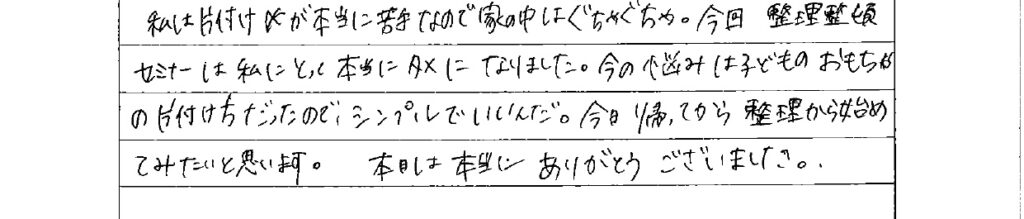 私は片付けが本当に苦手なので家の中はぐちゃぐちゃ。今回 整理整頓
セミナーは私にとって本当にタメになりました。今の悩みは子どものおもちゃ
の片付け方だったので、シンプルでいいんだ。今日帰ってから整理から始め
てみたいと思います。 本日は本当にありがとうございました。